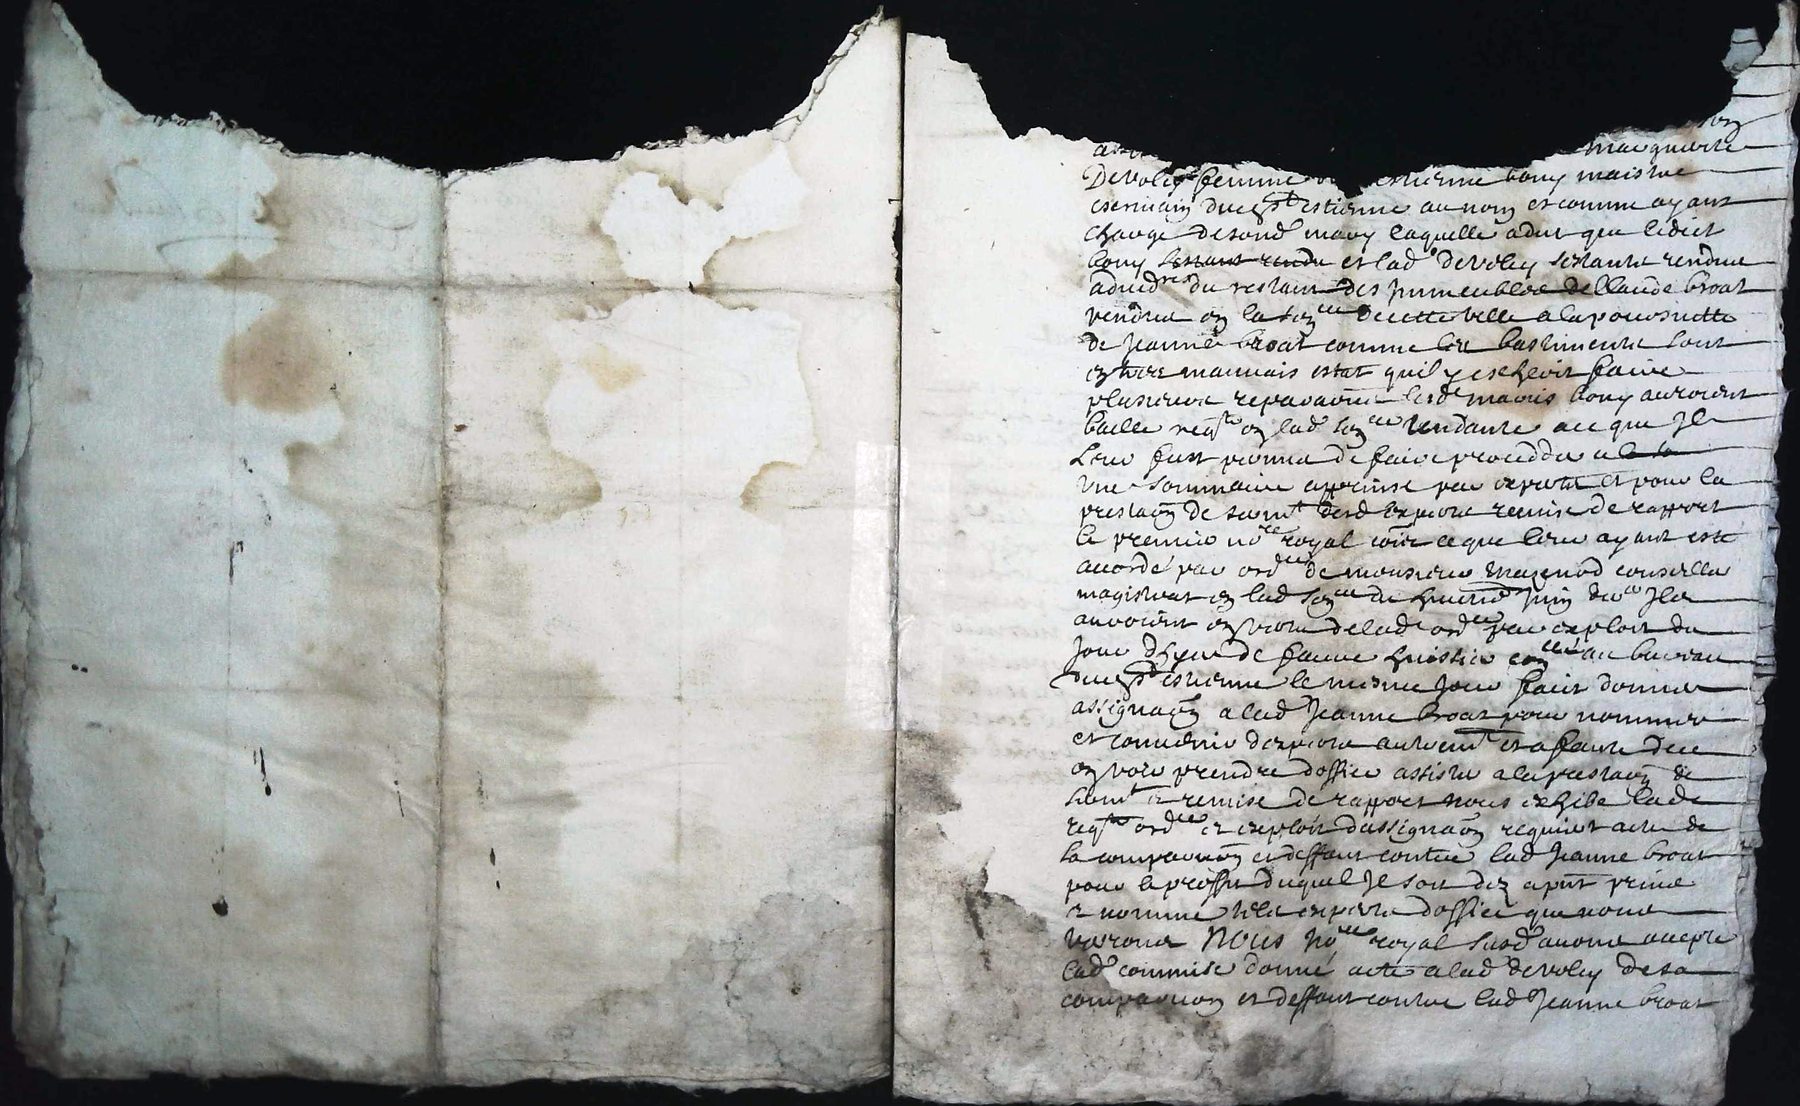 macguerite
De voley femme estienne bouy maistre
escrivain dud st estienne au nom et comme ayant
charge de sond mary laquelle a dit que ledict
bouy sestant rendu et lad de voley sestants rendus
du restant des immeubles de Claude broat
vendus en la son ceu de cette ville a la poursuitte
de Jeanne broat comme les bastiments sont
en tres mauvais estat quil y escheoit faire
plusieurs reparaons lesd maries bouy auroient
baille reqte en lad son ceu tendante a ce que Il
Leur fust permis de faire proceder a
une sommaire apprinse par expertz et pour la
prestaon de sermt desd expertz remise de rapport
le premier nore royal ce que leur ayant este
accorde par ordce de monsieur mazenod conseiller
magistrat en lad son ceu du juin der Ils
auroient en vertu de lad ordce par exploit du
Jour dhyer de faure huissier au bureau
dud st estienne le mesme Jour fait donner
assignaon a lad Jeanne broat pour nommer
et convenir dexpertz autremt et a faute de ce
en voir prendre doffice assister a la prestaon de
sermt et remise de rapport nous exhibe lade
reqte ordce et exploit dassignaon requiert acte de
sa comparaon et deffaut contre lad Jeanne broat
pour le proffit duquel Il soit dez a pnt prins
et nomme telz expertz doffice que nous
verrons Nous nore royal susd avons accepte
lad commise donne acte a lad de voley de sa
comparuon et deffaut contre lad Jeanne broat